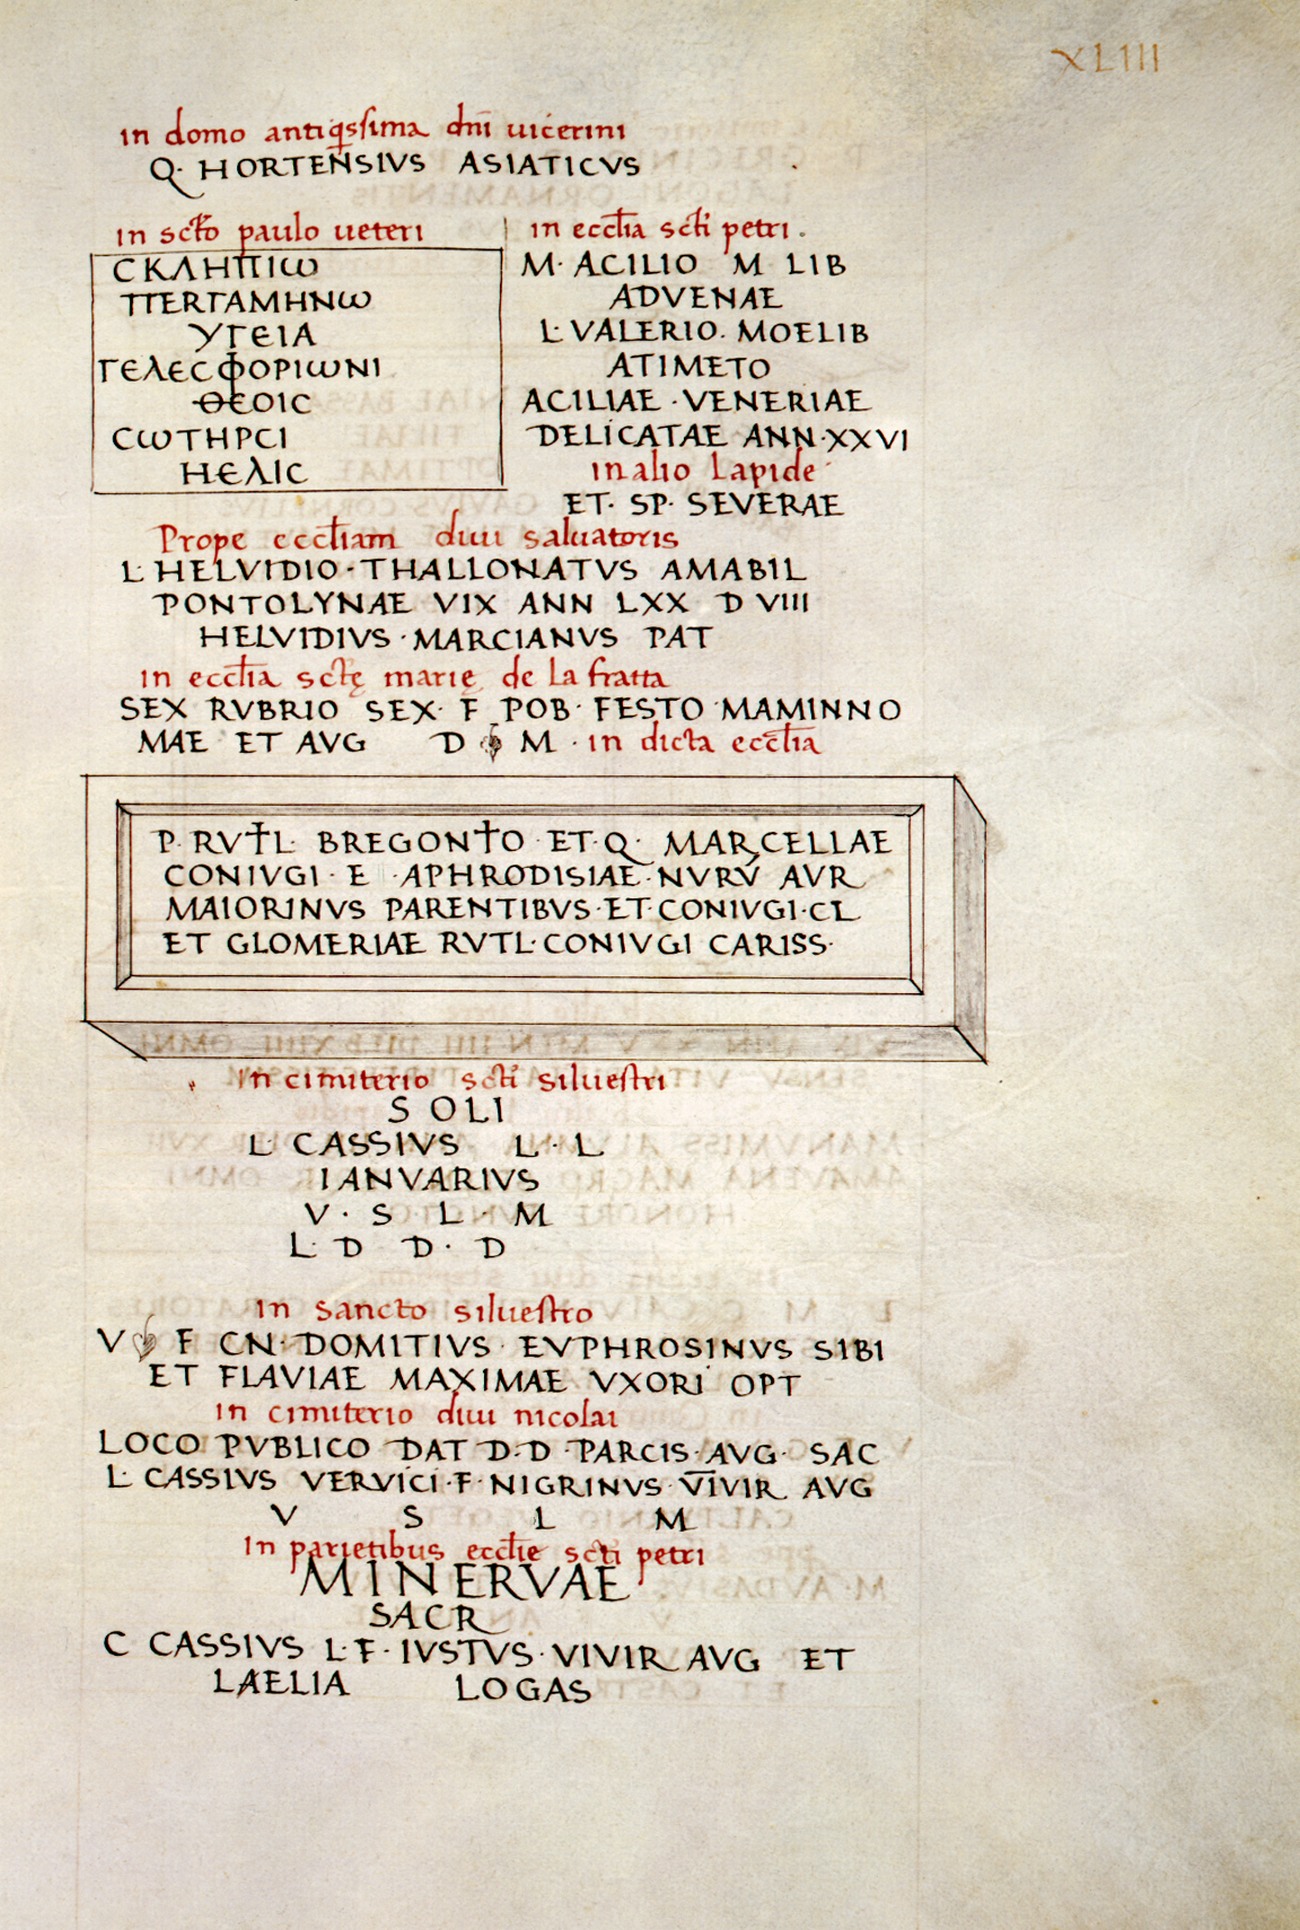 XLIII
in domo antiqssima dn̄i uicerini
Q· HORTENSIVS ASIATICVS
in scto paulo ueteri
CΚΛΗΠΙω
ΠΕRΓΑΜΗΝω
ΥΓΕΙΑ
ΓΕΛΕCΦΟΡΙωΝΙ
ΘΕΟΙC
CωΤΗΡCΙ
ΗΕΛΙC
in ecctia scti petri .
M· ACILIO M LIB
ADVENAE
L· VALERIO. MOELIB
ATIMETO
ACILIAE · VENERIAE
DELICATAE ANN·XXVI
in alio lapide
ET· SP· SEVERAE
Prope ecctiam diui saluatoris
L· HELVIDIO · THALLONATVS AMABIL
PONTOLYNAE VIX ANN LXX D VIII
HELVIDIVS · MARCIANVS PAT
in ecctia sctę marię de la fratta
SEX RVBRIO SEX· F POB· FESTO MAMINNO
MAE ET AVG D ❦ M · in dicta ecctia
P· RVTL· BREGONTO ET·Q· MARCELLAE
CONIVGI · E · APHRODISIAE·NVRV AVR
MAIORINVS PARENTIBVS·ET·CONIVGI·CL
ET GLOMERIAE RVTL·CONIVGI CARISS·
In cimiterio scti siluestri
SOLI
L· CASSIVS L · L
IANVARIVS
V · S L · M
L· D D · D
in sancto siluestro
V ❦ F CN· DOMITIVS · EVPHROSINVS SIBI
ET FLAVIAE MAXIMAE VXORI OPT
in cimiterio diui nicolai
LOCO PVBLICO DAT D·D ·PARCIS·AVG· SAC
L· CASSIVS VERVICI·F·NIGRINVS·V̅I̅VIR AVG
V S L M
In parietibus ecctie scti petri
MINERVAE
SACR
C CASSIVS L·F· IVSTVS·VIVIR AVG ET
LAELIA LOGAS